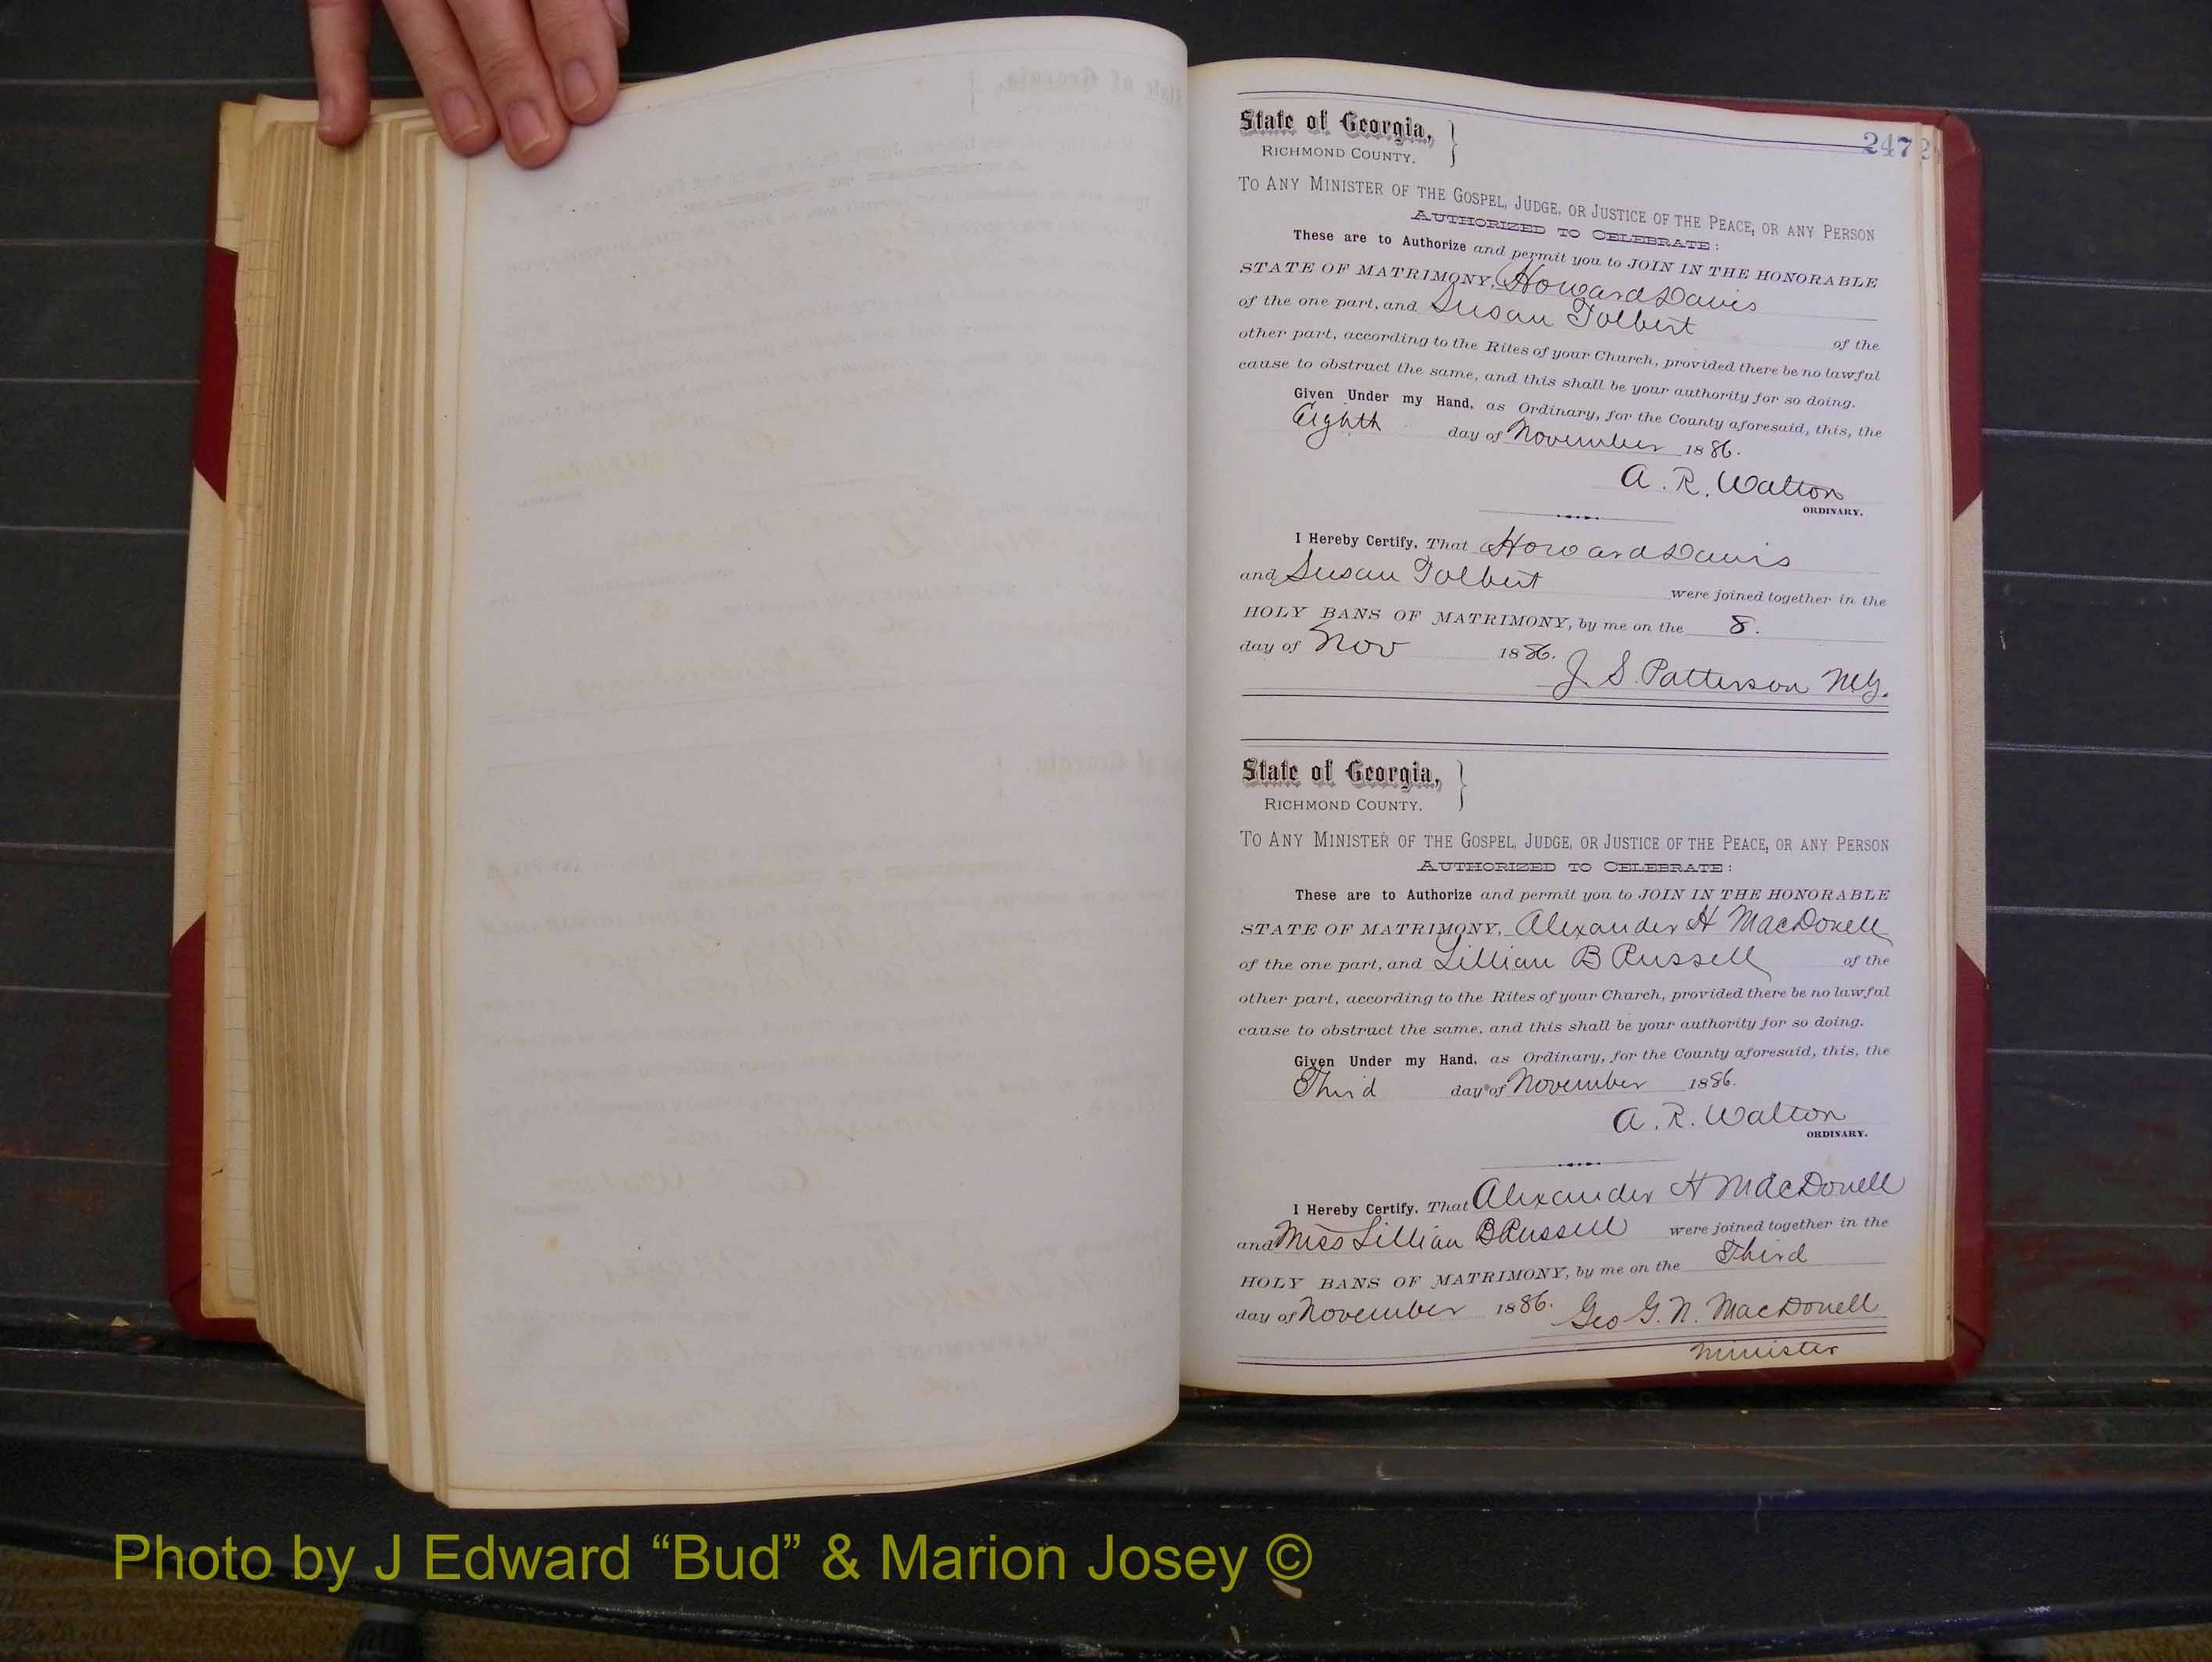 247
State of Georgia,
RICHMOND COUNTY.
TO ANY MINISTER OF THE GOSPEL, JUDGE, OR JUSTICE OF THE PEACE, OR ANY PERSON
AUTHORIZED TO CELEBRATE:
These are to Authorize and permit you to JOIN IN THE HONORABLE
STATE OF MATRIMONY, Howard Davis
of the one part, and Susan Tolbert of the
other part, according to the Rites of your Church, provided there be no lawful
cause to obstruct the same, and this shall be your authority for so doing.
Given Under my Hand, as Ordinary, for the County aforesaid, this, the
Eighth day of November 1886.
A. R. Walton
ORDINARY.
I Hereby Certify, That Howard Davis
and Susan Tolbert were joined together in the
HOLY BANS OF MATRIMONY, by me on the 8.
day of Nov 1886.
J. S. Patterson M.G.
State of Georgia,
RICHMOND COUNTY.
TO ANY MINISTER OF THE GOSPEL, JUDGE, OR JUSTICE OF THE PEACE, OR ANY PERSON
AUTHORIZED TO CELEBRATE:
These are to Authorize and permit you to JOIN IN THE HONORABLE
STATE OF MATRIMONY, Alexander H MacDonell
of the one part, and Lillian B Russell of the
other part, according to the Rites of your Church, provided there be no lawful
cause to obstruct the same, and this shall be your authority for so doing.
Given Under my Hand, as Ordinary, for the County aforesaid, this, the
Third day of November 1886.
A. R. Walton
ORDINARY.
I Hereby Certify, That Alexander H MacDonell
and Miss Lillian B Russell were joined together in the
HOLY BANS OF MATRIMONY, by me on the Third
day of November 1886. Geo G. N. MacDonell
Minister
Photo by J Edward “Bud” & Marion Josey ©